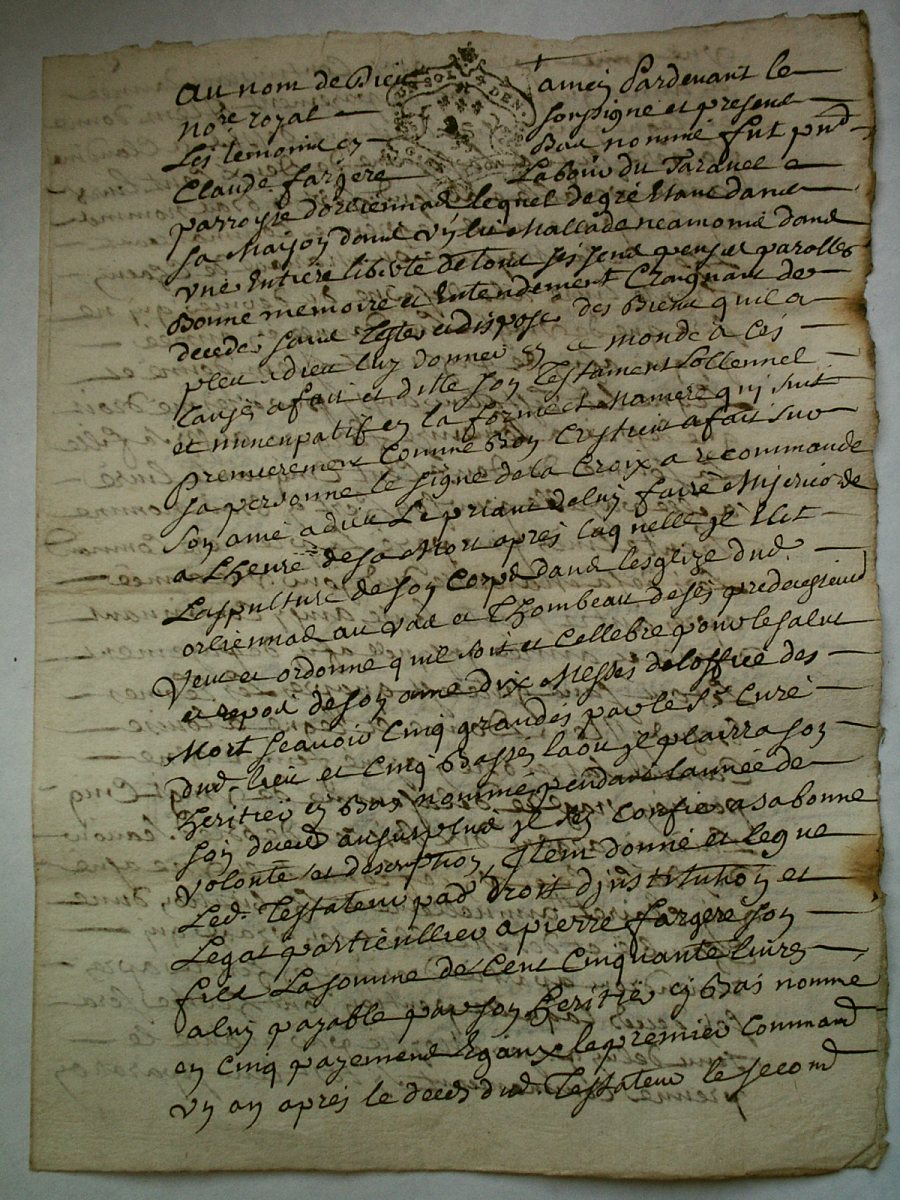 Au nom de Dieu amen Pardevant le
no.re royal soussigné et present
Les temoins cy Bas nommé fut pnt
Claude fargere Labour du Taravel
parroysse dorliennas lequel de gré Etant dans
sa Maison dans un lit Mallade neamoins dans
une Entiere liberte de tous ses sens pensees parolles
Bonne memoire et Entendement Craignant de
deceder sans Tester et dispose des Biens quil a
pleu a dieu luy donner en ce monde a ces
causes a fait et dille son Testament sollennel
et nuncupatif en la forme et maniere qui suit
Premierement comme Bon Crestien a fait sur
sa personne le signe de la Croix a recommande
son ame a dieu Le priant de luy faire Misericorde
a Lheure de sa Mort apres laquelle il Elit
La spulture de son Corps dans lesglize dud
orliennas au Vas et Thombeau de ses predecesseurs
Veut et ordonne quil soit et Cellebre pour le salut
et repos de son ame dix Messes de loffice des
Mort scavoir Cinq grandes par le Sr. Curé
dud. lieu et Cinq Basses la ou il plairra a son
heritier cy Bas nommé pendant lannée de
son deceds au surplus il sen Confie a sa bonne
volonté et descreption, Item donne et legue
Led. Testateur par droit dinstitution et
Legat particullier a pierre fargere son
fils La somme de Cent Cinquante livres
a luy payable par son heritier cy Bas nommé
en Cinq payemens Egaux le premier Command
un an apres le deceds dud. Testateur le second